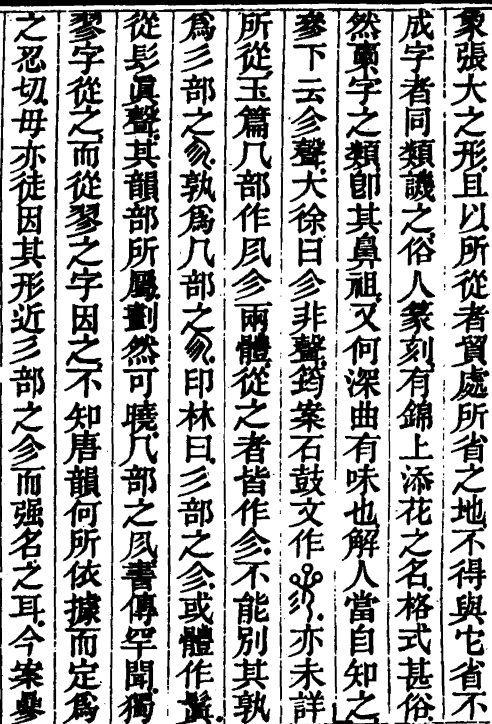 象張大之形且以所從者貿處所省之地不得與它省不
成字者同類譏之俗人篆刻有錦上添花之名格式甚俗
然㯻字之類卽其鼻祖又何深曲有味也解人當自知之
參下云㐱聲大徐曰㐱非聲筠案石鼓文作亦未詳
所從玉篇几部作㐱兩體從之者皆作㐱不能別其孰
爲彡部之孰爲几部之印林曰彡部之㐱或體作鬒
從髟眞聲其韻部所屬劃然可曉几部之書傳罕聞獨
翏字從之而從翏之字因之不知唐韻何所依據而定爲
之忍切毋亦徒因其形近彡部之㐱而强名之耳今案參